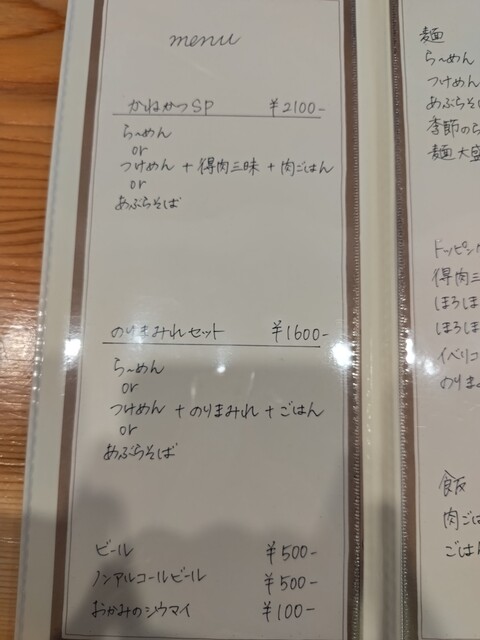 menu
かねかつSP ￥2100-
らーめん
or
つけめん + 得肉三昧 + 肉ごはん
or
あぶらそば
のりまみれセット ￥1600-
らーめん
or
つけめん + のりまみれ + ごはん
or
あぶらそば
ビール ￥500-
ノンアルコールビール ￥500-
おかみのシウマイ ￥100-
麺
らーめん
つけめん
あぶらそ
季節のら
麺大盛
トッピン
得肉三
ほろほ
ほろほ
イベリコ
のりま
飯
肉ご
ごはん